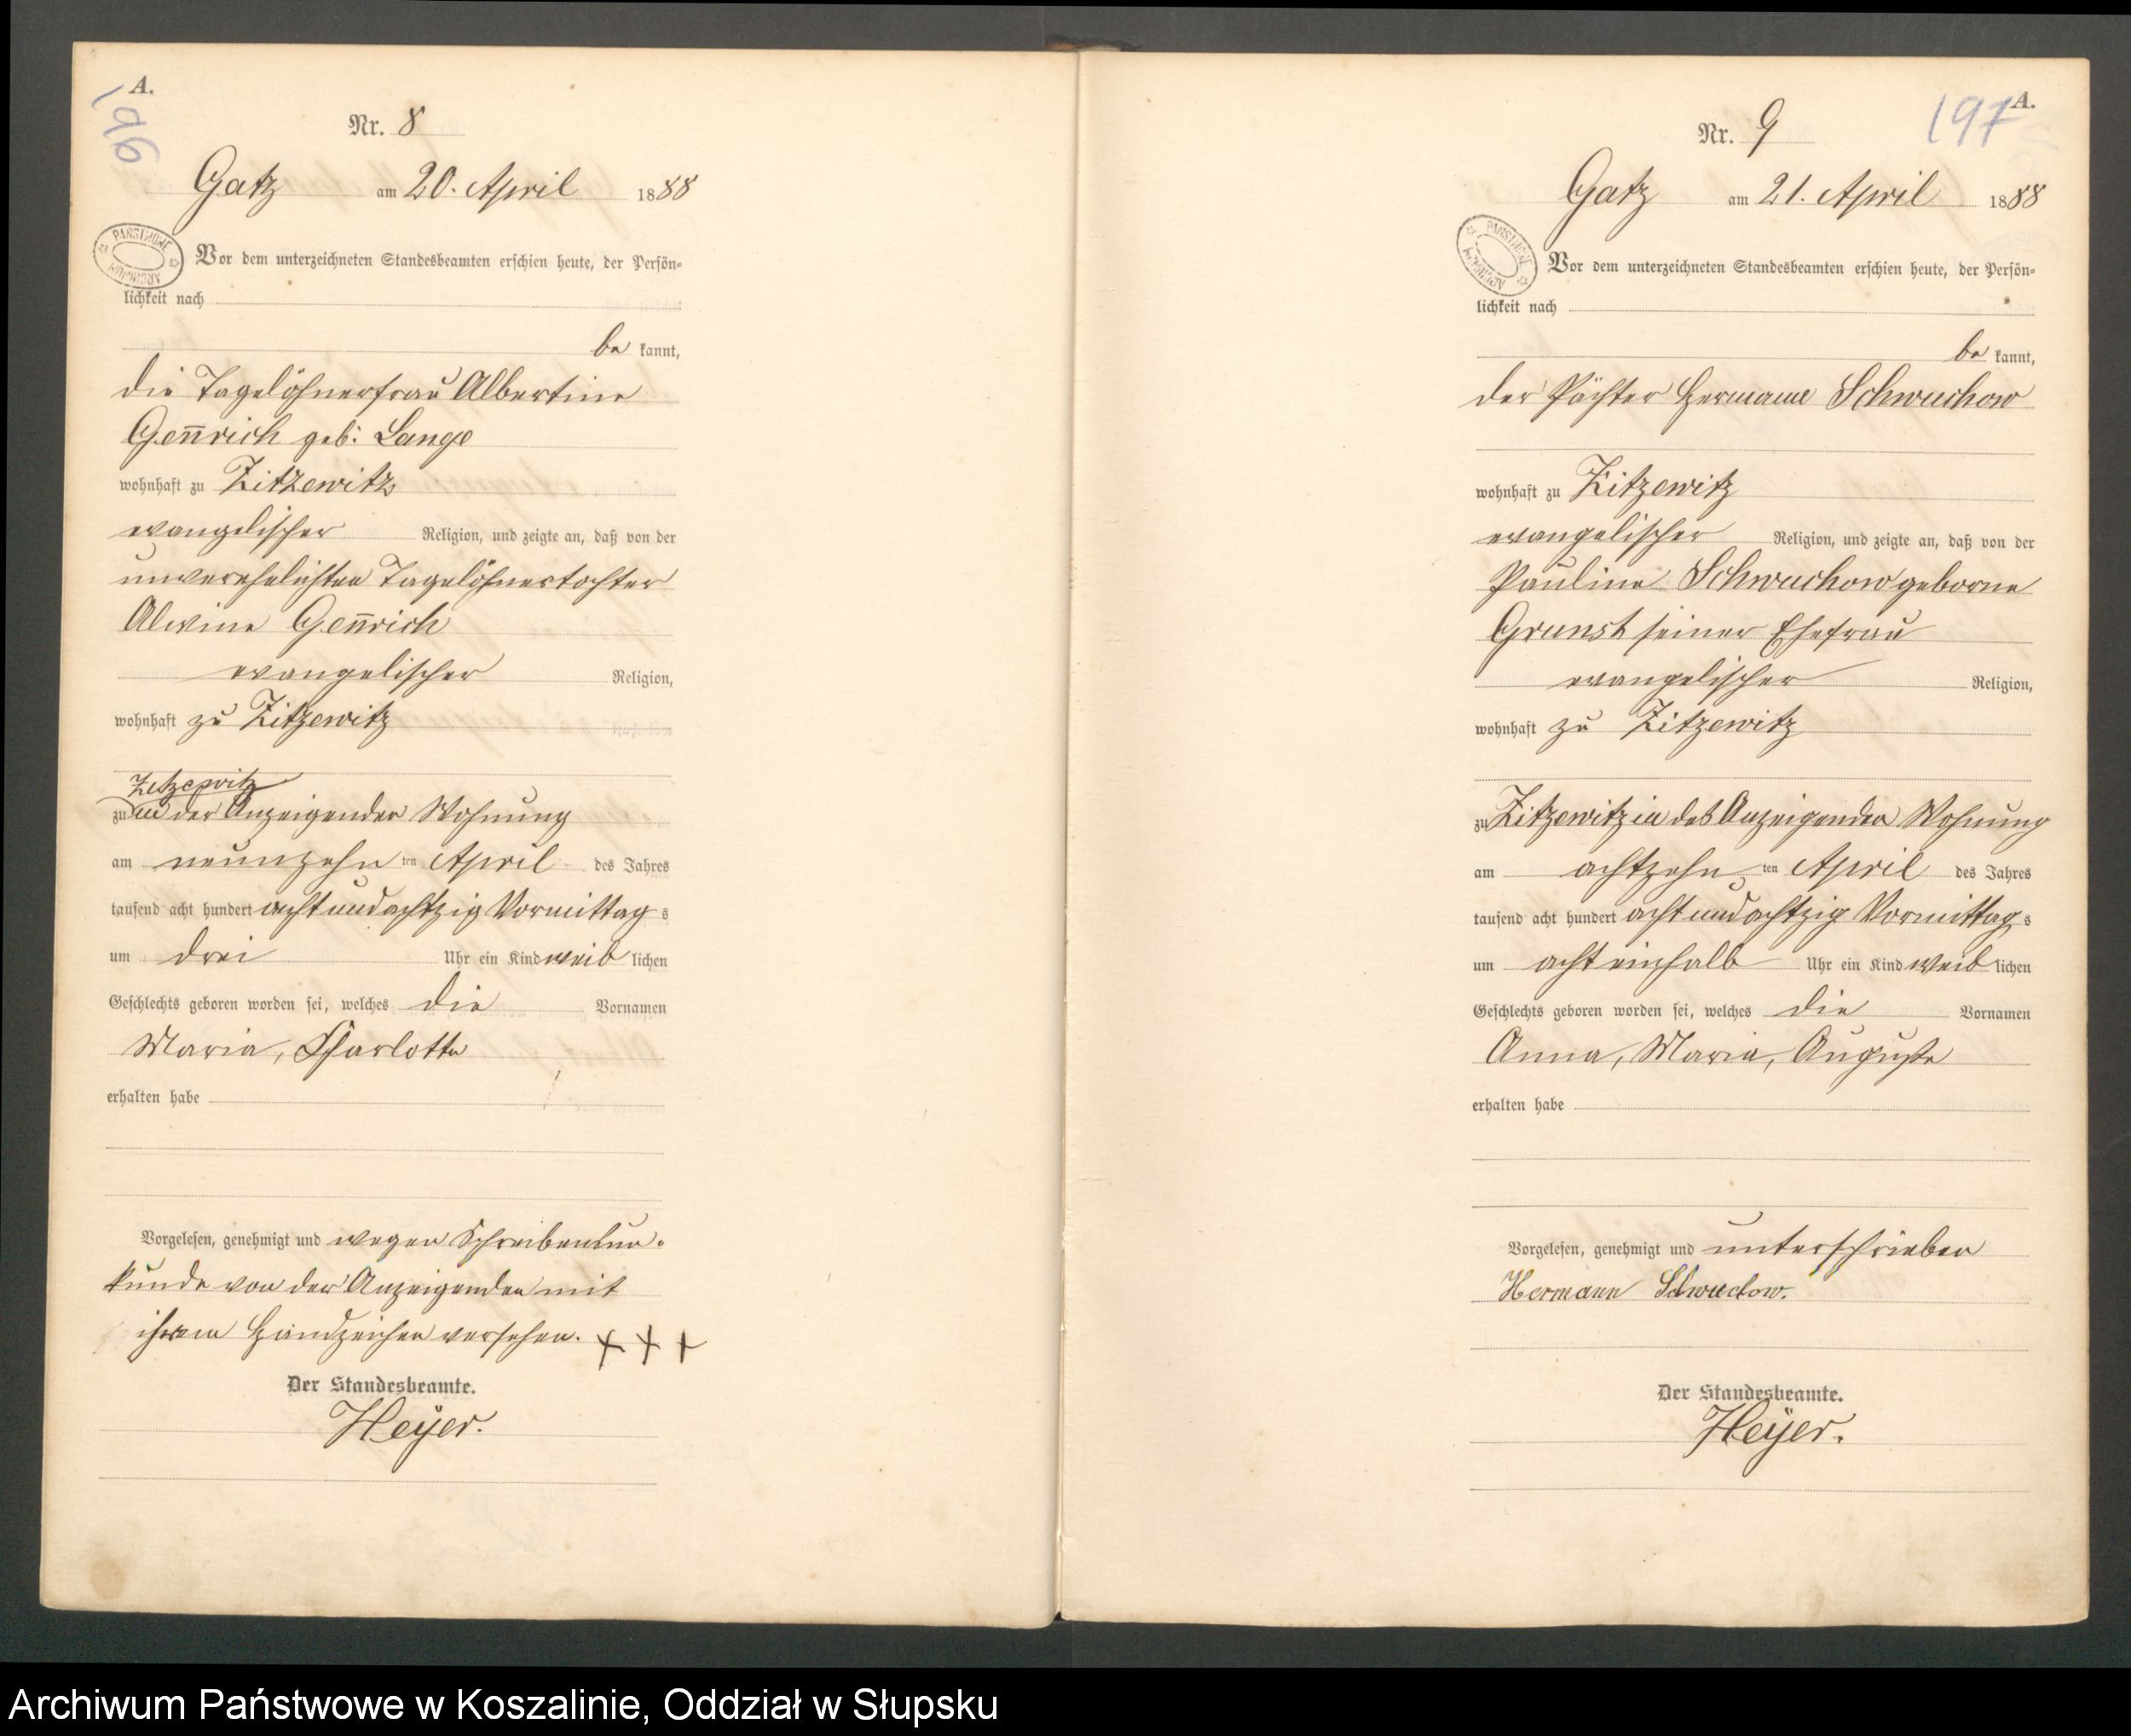 A.
196
Nr. 8
Gatz am 20. April 1888
PAŃSTWOWE ARCHIWUM
Vor dem unterzeichneten Standesbeamten erschien heute, der Persön-
lichkeit nach
be kannt,
die Tagelöhnerfrau Albertine
Gen̄rich geb: Lange
wohnhaft zu Zitzewitz
evangelischer Religion, und zeigte an, daß von der
unverehelichten Tagelöhnertochter
Alwine Gen̄rich
evangelischer Religion,
wohnhaft zu Zitzewitz
Zitzewitz
zu in der Anzeigenden Wohnung
am neunzehn ten April des Jahres
tausend acht hundert acht und achtzig Vormittag s
um drei Uhr ein Kind weib lichen
Geschlechts geboren worden sei, welches die Vornamen
Maria, Charlotte
erhalten habe
Vorgelesen, genehmigt und wegen Schreibensun-
kunde von der Anzeigenden mit
ihrem Handzeichen versehen. +++
Der Standesbeamte.
Heÿer.
A.
197
Nr. 9
Gatz am 21. April 1888
PAŃSTWOWE ARCHIWUM
Vor dem unterzeichneten Standesbeamten erschien heute, der Persön-
lichkeit nach
be kannt,
der Pächter Hermann Schwuchow
wohnhaft zu Zitzewitz
evangelischer Religion, und zeigte an, daß von der
Pauline Schwuchow geborne
Grunst seiner Ehefrau
evangelischer Religion,
wohnhaft zu Zitzewitz
zu Zitzewitz in des Anzeigenden Wohnung
am achtzehn ten April des Jahres
tausend acht hundert acht und achtzig Vormittag s
um acht einhalb Uhr ein Kind weib lichen
Geschlechts geboren worden sei, welches die Vornamen
Anna, Maria, Auguste
erhalten habe
Vorgelesen, genehmigt und unterschrieben
Hermann Schwuchow.
Der Standesbeamte.
Heÿer.
Archiwum Państwowe w Koszalinie, Oddział w Słupsku